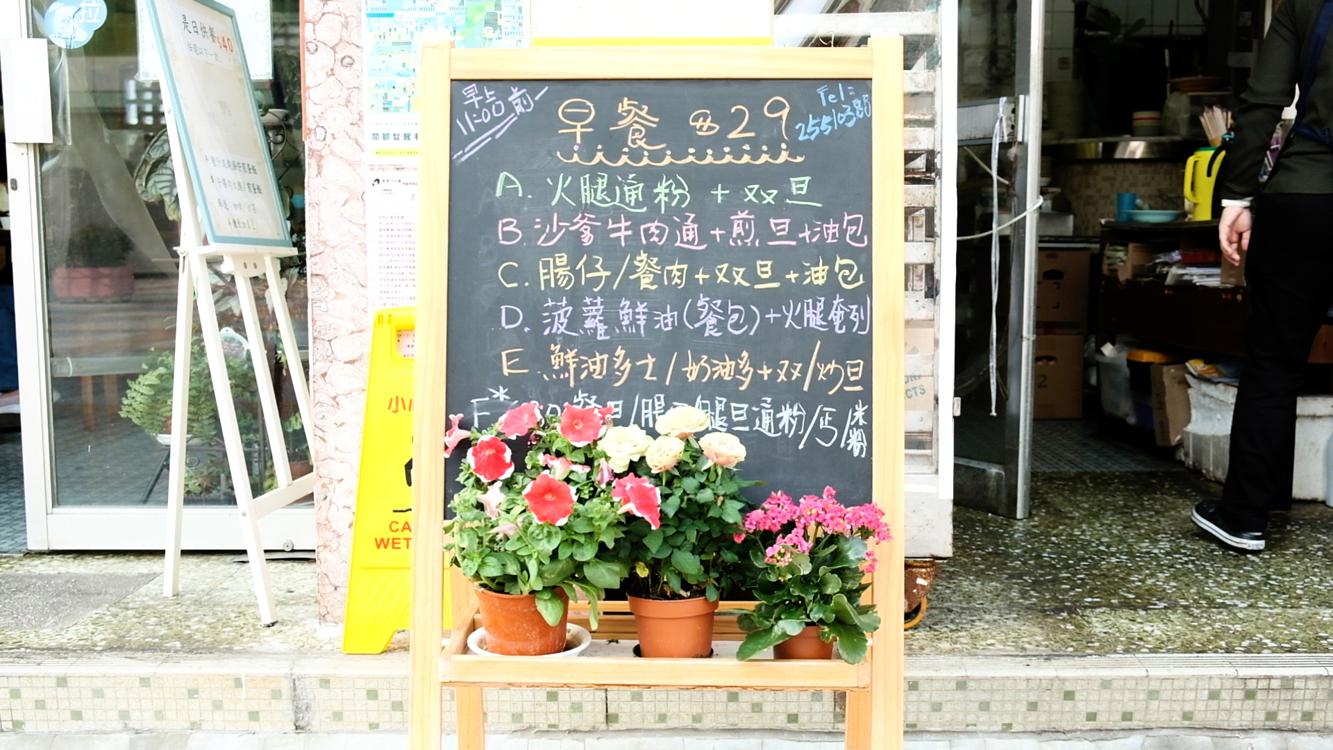 是日快餐$40
拉
早点
11:00前
早餐 $29
Tel:
25510386
A. 火腿通粉 + 双旦
B. 沙爹牛肉通+煎旦+油包
C. 腸仔/餐肉+双旦+油包
D. 菠蘿鮮油(餐包)+火腿奄列
E 鮮油多士/奶油多+双/炒旦
F* 餐旦/腸 腿旦通粉/丐/米粉
小
CA
WET